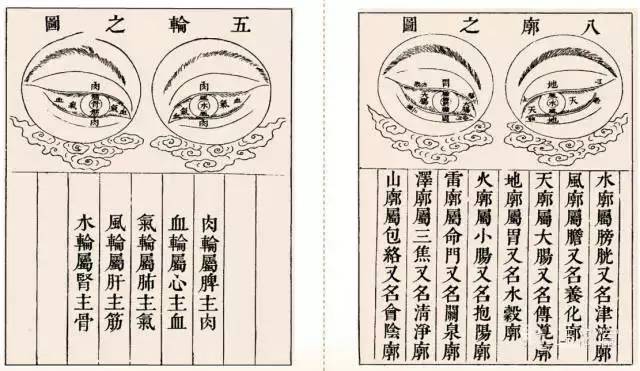 五輪之圖
肉
血
氣
水
氣
血
肉
肉
血
氣
骨
氣
血
肉
肉輪屬脾主肉
血輪屬心主血
氣輪屬肺主氣
風輪屬肝主筋
水輪屬腎主骨
八廓之圖
地
天
水
天
地
胃
大腸
水廓屬膀胱又名津液廓
風廓屬膽又名養化廓
天廓屬大腸又名傳導廓
地廓屬胃又名水穀廓
火廓屬小腸又名抱陽廓
雷廓屬命門又名關泉廓
澤廓屬三焦又名清淨廓
山廓屬包絡又名會陰廓